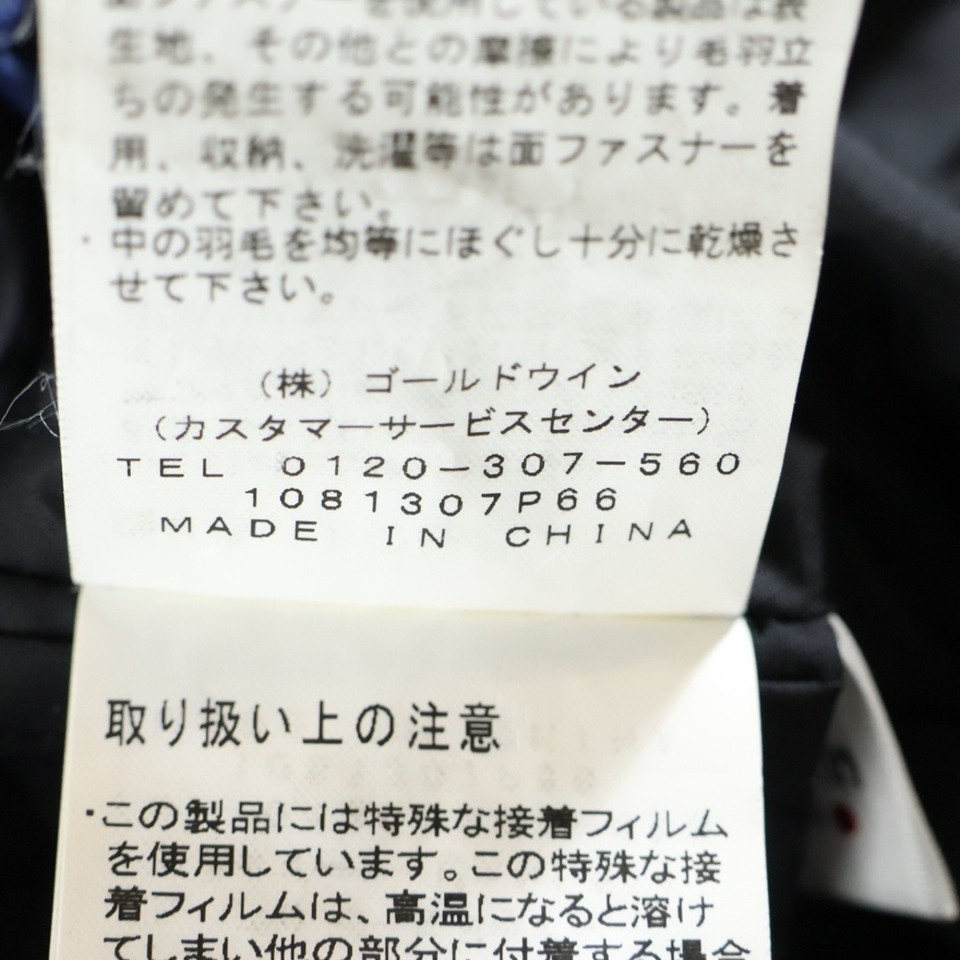 面ファスナーを使用している製品は表
生地、その他との摩擦により毛羽立
ちの発生する可能性があります。着
用、収納、洗濯等は面ファスナーを
留めて下さい。
・中の羽毛を均等にほぐし十分に乾燥さ
せて下さい。
（株）ゴールドウイン
（カスタマーサービスセンター）
TEL 0120-307-560
1081307P66
MADE IN CHINA
取り扱い上の注意
・この製品には特殊な接着フィルム
を使用しています。この特殊な接
着フィルムは、高温になると溶け
てしまい他の部分に付着する場合